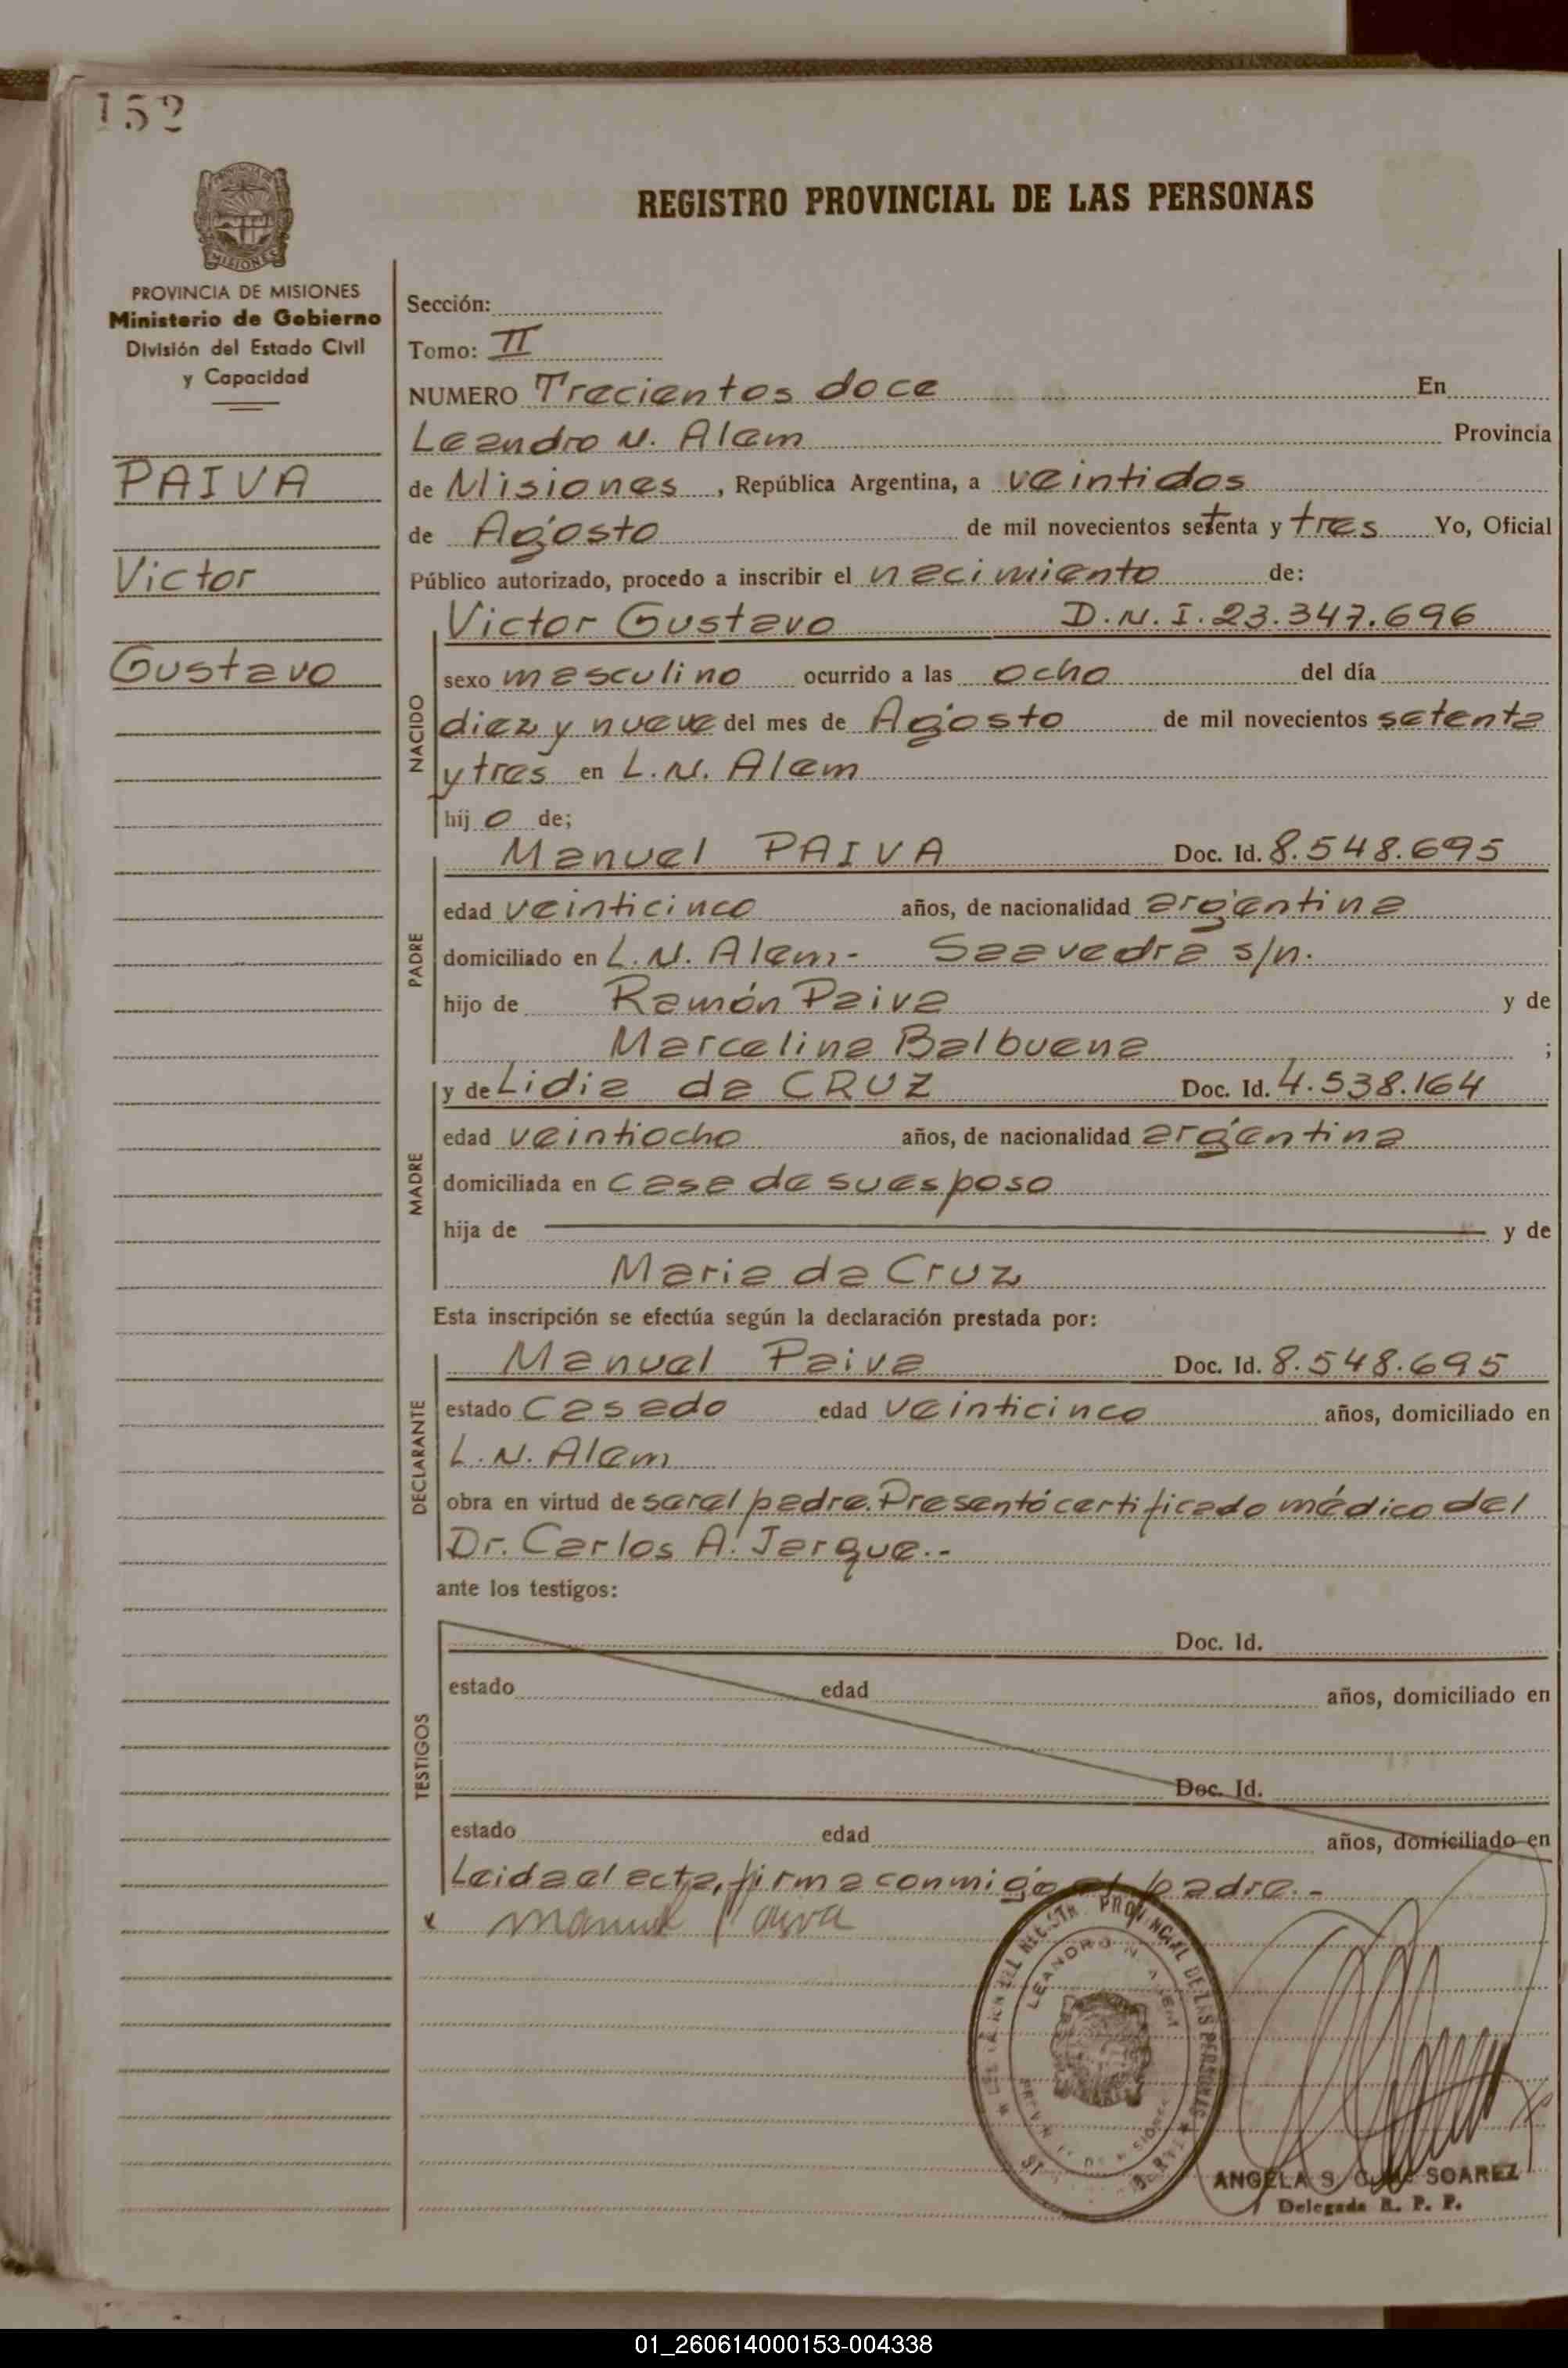 152
REGISTRO PROVINCIAL DE LAS PERSONAS
MISIONES
PROVINCIA DE MISIONES
Ministerio de Gobierno
División del Estado Civil
y Capacidad
PAIVA
Victor
Gustavo
Sección:
Tomo: II
NUMERO Trecientos doce En
Leandro N. Alem Provincia
de Misiones, República Argentina, a veintidos
de Agosto de mil novecientos setenta y tres Yo, Oficial
Público autorizado, procedo a inscribir el nacimiento de:
NACIDO
Victor Gustavo D.N.I. 23.347.696
sexo masculino ocurrido a las ocho del día
diez y nueve del mes de Agosto de mil novecientos setenta
y tres en L.N. Alem
hijo de;
PADRE
Manuel PAIVA Doc. Id. 8.548.695
edad veinticinco años, de nacionalidad argentina
domiciliado en L.N. Alem- Saavedra s/n.
hijo de Ramón Paiva y de
Marcelina Balbuena ;
MADRE
y de Lidia da CRUZ Doc. Id. 4.538.164
edad veintiocho años, de nacionalidad argentina
domiciliada en casa de su esposo
hija de y de
Maria da Cruz
Esta inscripción se efectúa según la declaración prestada por:
DECLARANTE
Manuel Paiva Doc. Id. 8.548.695
estado Casado edad veinticinco años, domiciliado en
L.N. Alem
obra en virtud de ser el padre. Presentó certificado médico del
Dr. Carlos A. Jarque.-
ante los testigos:
TESTIGOS
Doc. Id.
estado edad años, domiciliado en
Doc. Id.
estado edad años, domiciliado en
Leida el acta, firma conmigo el padre.-
x Manuel Paiva
PROVINCIAL DE LAS PERSONAS
LEANDRO N. ALEM
ANGELA S. SOAREZ
Delegada R. P. P.
01_260614000153-004338